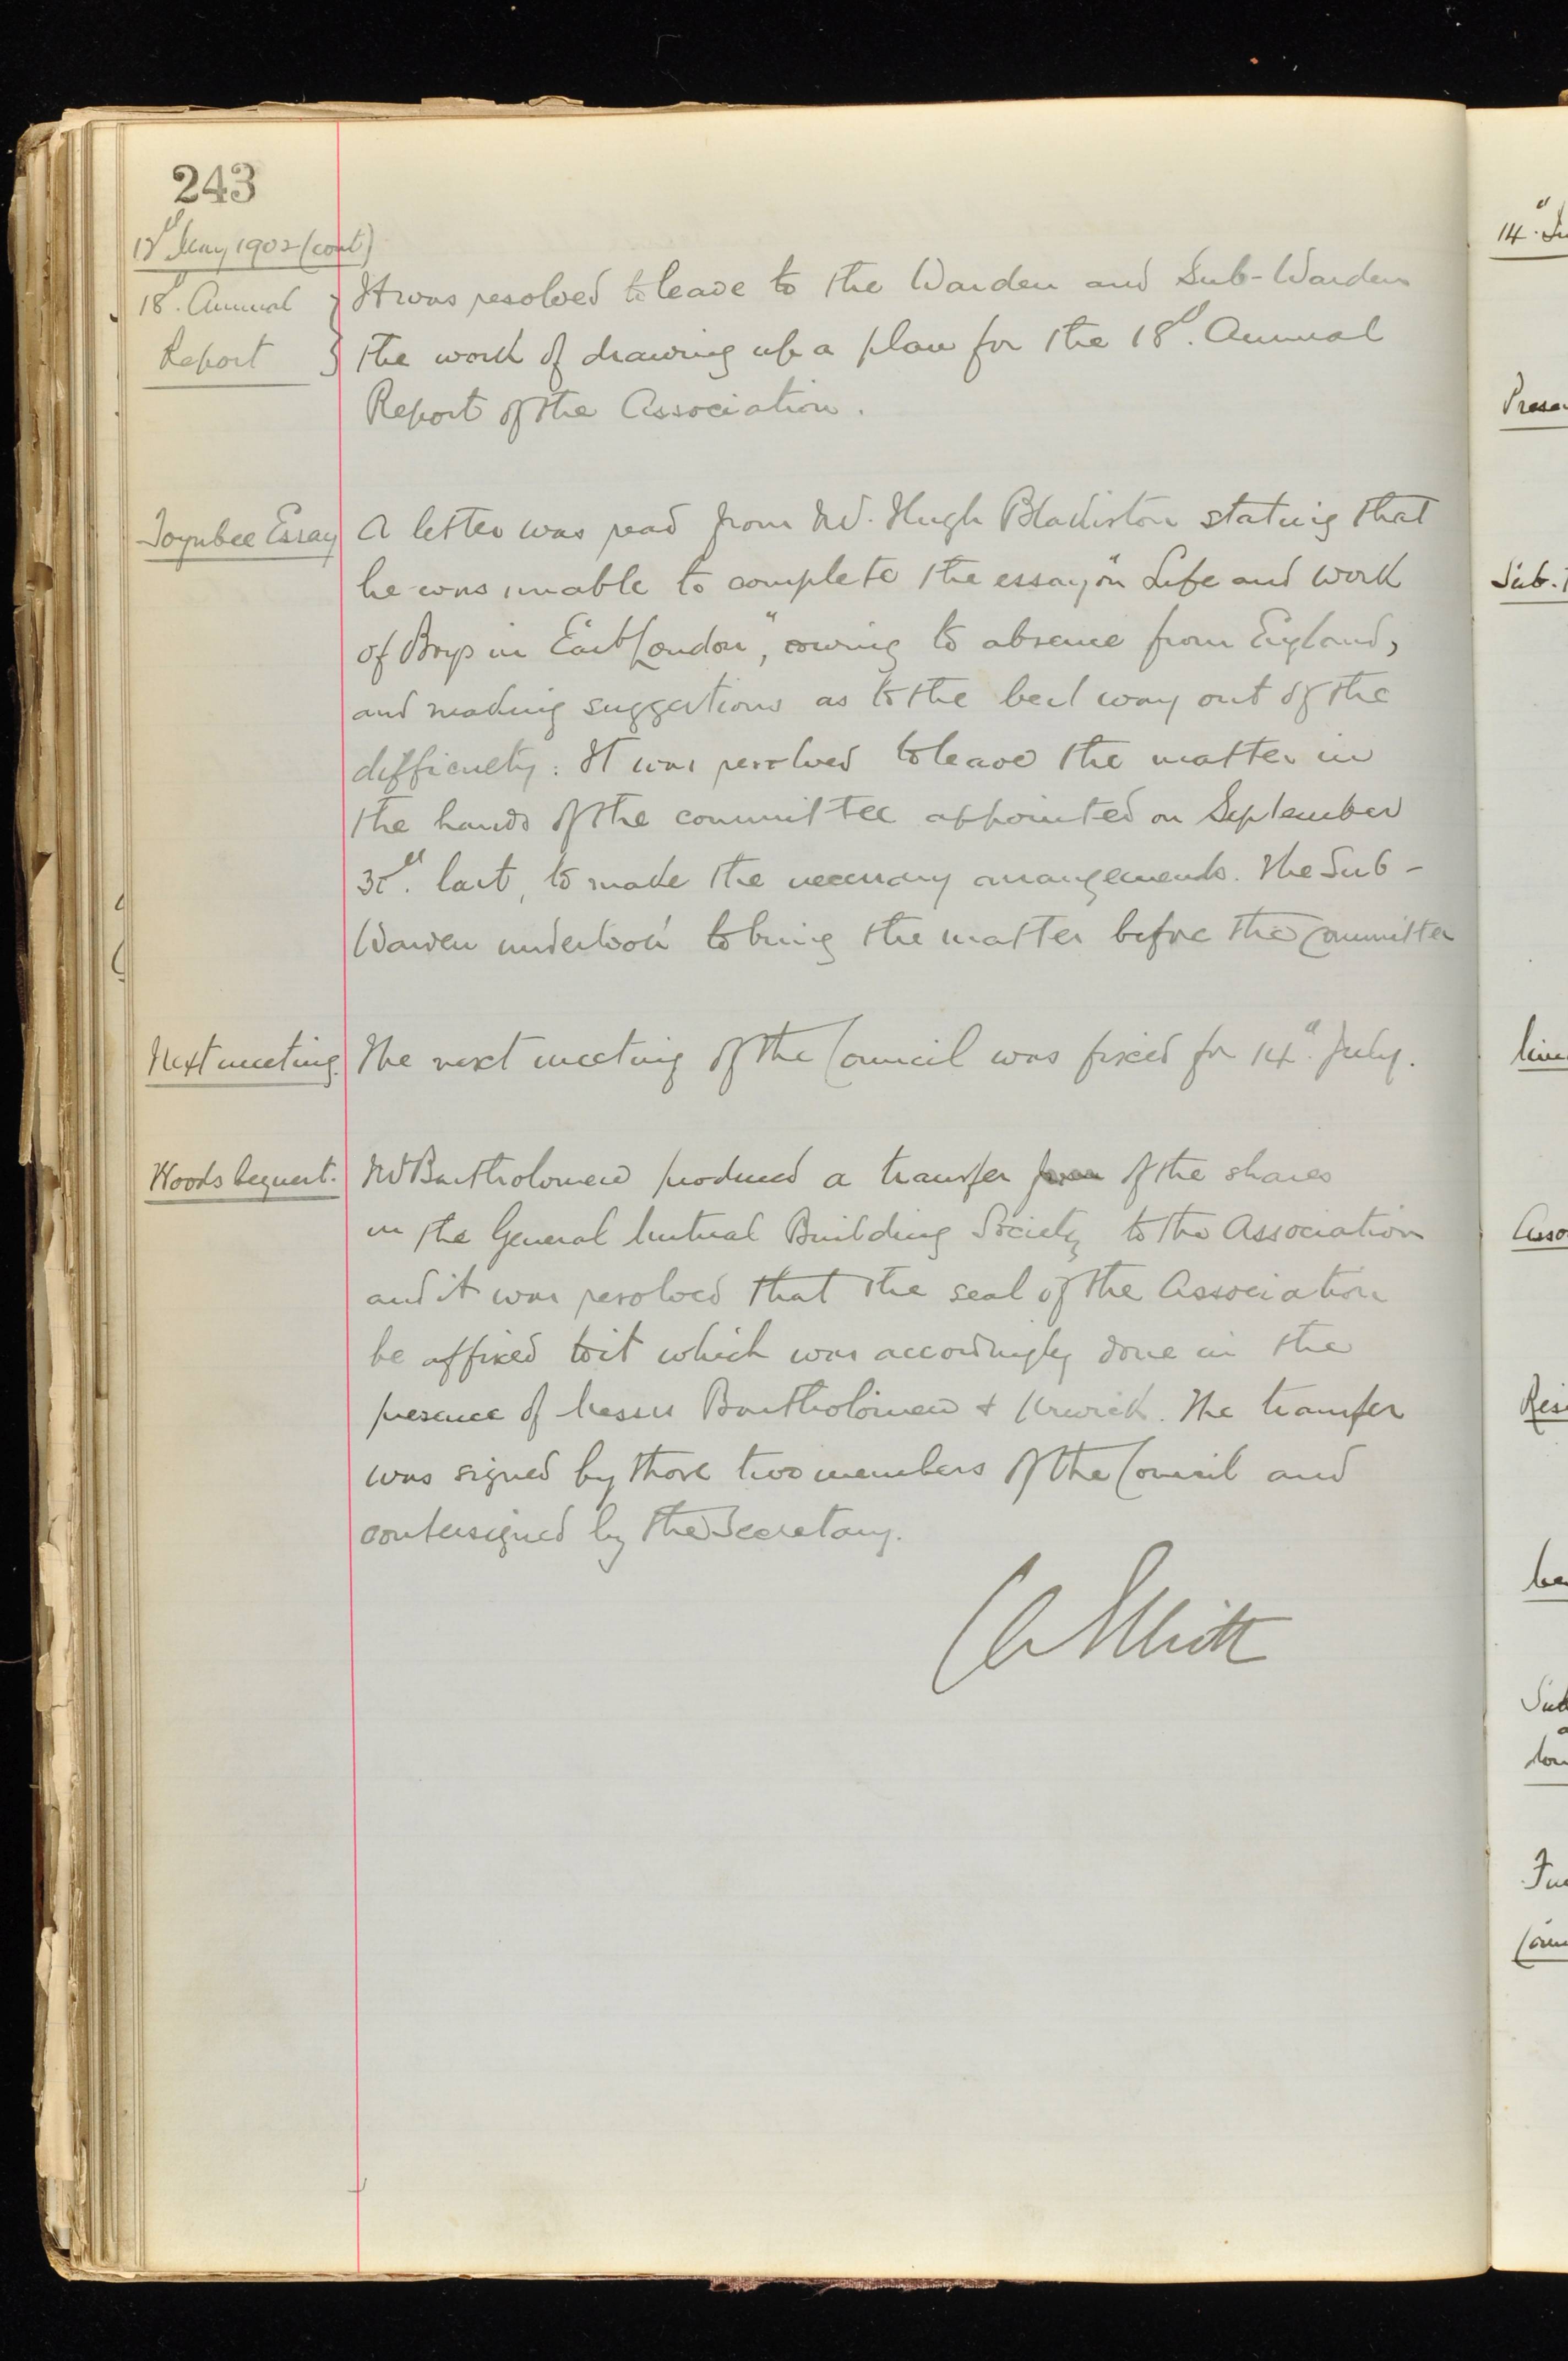 243
12th May 1902 (cont)
18th. Annual
Report
It was resolved to leave to the Warden and Sub-Warden
the work of drawing up a plan for the 18th. Annual
Report of the Association.
Toynbee Essay
A letter was read from Mr. Hugh Blackiston stating that
he was unable to complete the essay on "Life and work
of Boys in East London", owing to absence from England,
and making suggestions as to the best way out of the
difficulty: It was resolved to leave the matter in
the hands of the committee appointed on September
30th. last, to make the necessary arrangements. The Sub-
Warden undertook to bring the matter before the Committee
Next meeting.
The next meeting of the Council was fixed for 14th. July.
Woods bequest.
Mr Bartholomew produced a transfer of the shares
in the General Mutual Building Society to the Association
and it was resolved that the seal of the Association
be affixed to it which was accordingly done in the
presence of Messrs Bartholomew & Urwick. The transfer
was signed by those two members of the Council and
contersigned by the Secretary.
CA Elliott
14th
Sub.